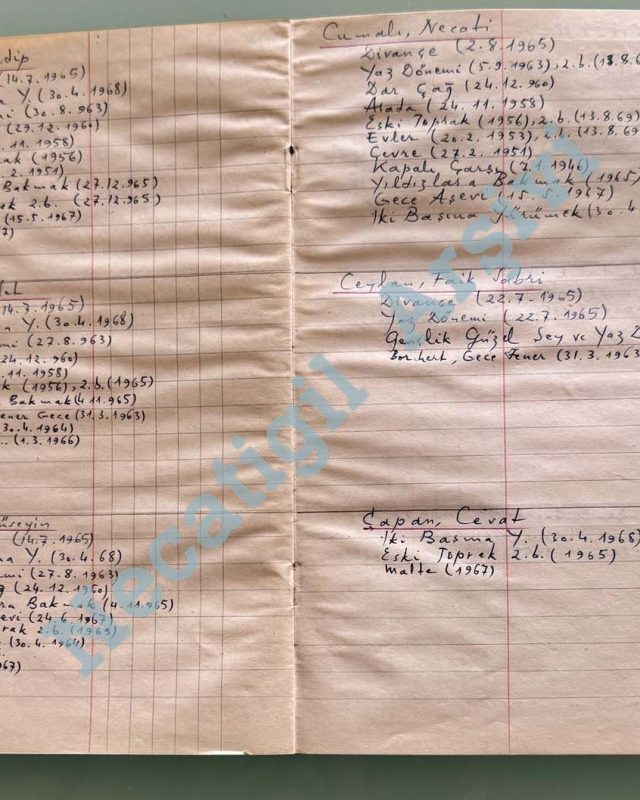 dip
(14.7.1965)
a Y. (30.4.1968)
i (30.8.963)
(29.12.1960)
.11.1958)
ak (1956)
.2.1951)
Bakmak (27.12.965)
ak 2.b. (27.12.965)
(15.5.1967)
7)
14.7.1965)
a Y. (30.4.1968)
mi (27.8.963)
24.12.960)
.11.1958)
k (1956), 2.b. (1965)
Bakmak (4.11.965)
ener Gece (31.3.1963)
30.4.1964)
.. (1.3.1966)
üseyin
(14.7.1965)
ma Y. (30.4.68)
emi (27.8.1963)
(24.12.1960)
ra Bakmak (4.11.965)
evi (24.6.1967)
rak 2.b. (1965)
(30.4.1964)
967)
Cumalı, Necati
Divançe (2.8.1965)
Yaz Dönemi (5.9.1963), 2.b. (13.8.6
Dar Çağ (24.12.960)
Arada (24.11.1958)
Eski Toprak (1956), 2.b. (13.8.69)
Evler (20.2.1953), 2.b. (13.8.69)
Çevre (27.2.1951)
Kapalı Çarşı (7.1.1946)
Yıldızlara Bakmak (1965)
Gece Aşevi (15.5.1967)
İki Başına Yürümek (30.4
Ceylan, Faik Sabri
Divançe (22.7.1965)
Yaz Dönemi (22.7.1965)
Gençlik Güzel Şey ve Yaz
Borchert, Gece Fener (31.3.1963
Çapan, Cevat
İki Başına Y. (30.4.1968)
Eski Toprak 2.b. (1965)
Malte (1967)
Necatigil Arşivi